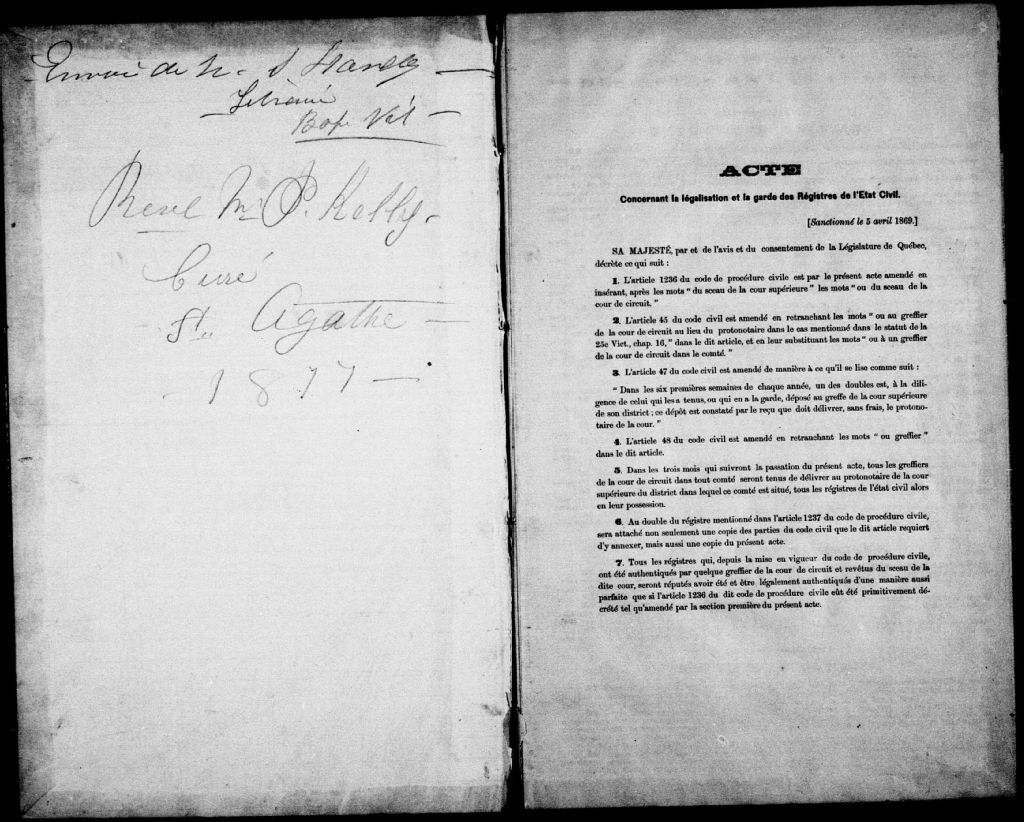 Envoi de N. S. Hardy —
Libraire
Basse Ville —
Revd Mr P. Kelly —
Curé
St. Agathe —
— 1877 —
ACTE
Concernant la légalisation et la garde des Régistres de l'Etat Civil.
[Sanctionné le 5 avril 1869.]
SA MAJESTÉ, par et de l'avis et du consentement de la Législature de Québec,
décrète ce qui suit :
1. L'article 1236 du code de procédure civile est par le présent acte amendé en
insérant, après les mots " du sceau de la cour supérieure " les mots " ou du sceau de la
cour de circuit. "
2. L'article 45 du code civil est amendé en retranchant les mots " ou au greffier
de la cour de circuit au lieu du protonotaire dans le cas mentionné dans le statut de la
25e Vict., chap. 16, " dans le dit article, et en leur substituant les mots " ou à un greffier
de la cour de circuit dans le comté. "
3. L'article 47 du code civil est amendé de manière à ce qu'il se lise comme suit :
" Dans les six premières semaines de chaque année, un des doubles est, à la dili-
gence de celui qui les a tenus, ou qui en a la garde, déposé au greffe de la cour supérieure
de son district ; ce dépôt est constaté par le reçu que doit délivrer, sans frais, le protono-
taire de la cour. "
4. L'article 48 du code civil est amendé en retranchant les mots " ou greffier "
dans le dit article.
5. Dans les trois mois qui suivront la passation du présent acte, tous les greffiers
de la cour de circuit dans tout comté seront tenus de délivrer au protonotaire de la cour
supérieure du district dans lequel ce comté est situé, tous les régistres de l'état civil alors
en leur possession.
6. Au double du régistre mentionné dans l'article 1237 du code de procédure civile,
sera attaché non seulement une copie des parties du code civil que le dit article requiert
d'y annexer, mais aussi une copie du présent acte.
7. Tous les régistres qui, depuis la mise en vigueur du code de procédure civile,
ont été authentiqués par quelque greffier de la cour de circuit et revêtus du sceau de la
dite cour, seront réputés avoir été et être légalement authentiqués d'une manière aussi
parfaite que si l'article 1236 du dit code de procédure civile eût été primitivement dé-
crété tel qu'amendé par la section première du présent acte.